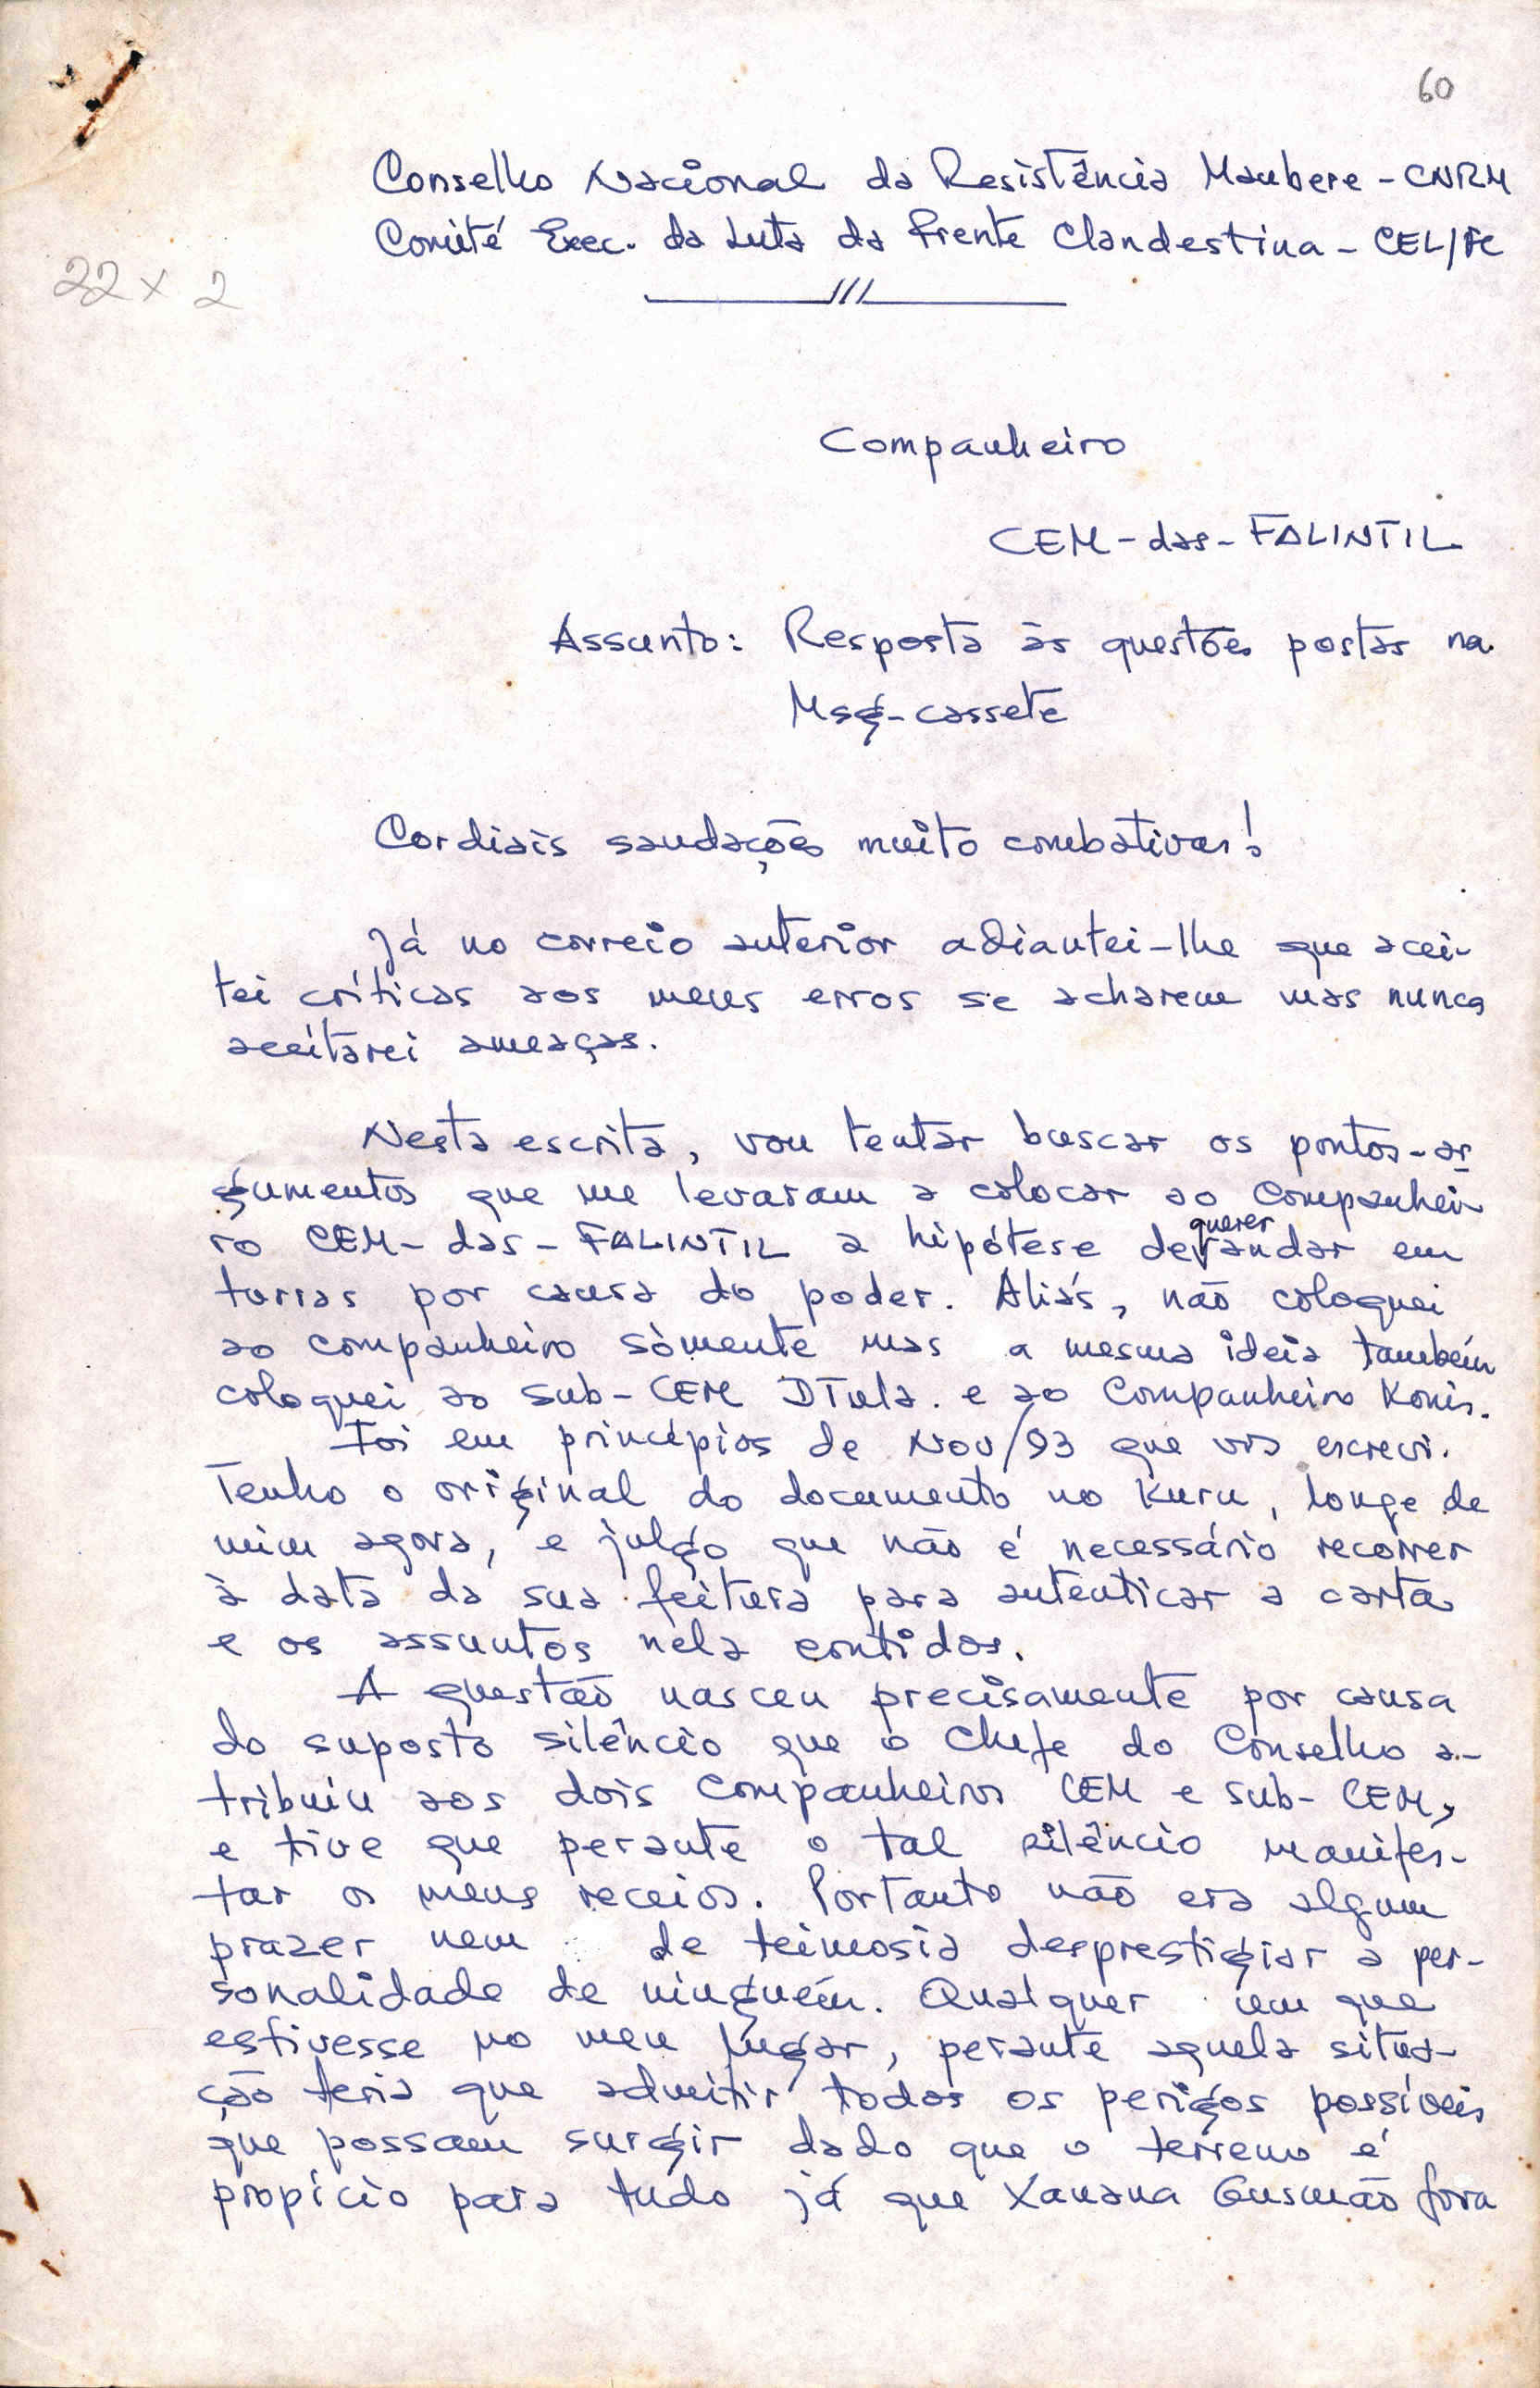 60
Conselho Nacional da Resistência Maubere - CNRM
Comité Exec. da Luta da Frente Clandestina - CEL/FC
22 x 2
///
Companheiro
CEM - das - FALINTIL
Assunto: Resposta às questões postas na
Msg - cassete
Cordiais saudações muito combativas!
Já no correio anterior adiantei-lhe que acei-
tei críticas aos meus erros se acharem mas nunca
aceitarei ameaças.
Nesta escrita, vou tentar buscar os pontos-ar
gumentos que me levaram a colocar ao Companhei
ro CEM - das - FALINTIL a hipótese de querer andar em
turras por causa do poder. Aliás, não coloquei
ao companheiro sòmente mas a mesma ideia também
coloquei ao Sub-CEM DTula. e ao Companheiro Konis.
Foi em princípios de Nov/93 que vos escrevi.
Tenho o original do documento no Kuru, longe de
mim agora, e julgo que não é necessário recorrer
à data da sua feitura para autenticar a carta
e os assuntos nela contidos.
A questão nasceu precisamente por causa
do suposto silêncio que o Chefe do Conselho a-
tribuiu aos dois Companheiros CEM e Sub-CEM,
e tive que perante o tal silêncio manifes-
tar os meus receios. Portanto não era algum
prazer nem de teimosia desprestigiar a per-
sonalidade de ninguém. Qualquer um que
estivesse no meu lugar, perante aquela situa-
ção teria que admitir todos os perigos possíveis
que possam surgir dado que o terreno é
propício para tudo já que Xanana Gusmão fora